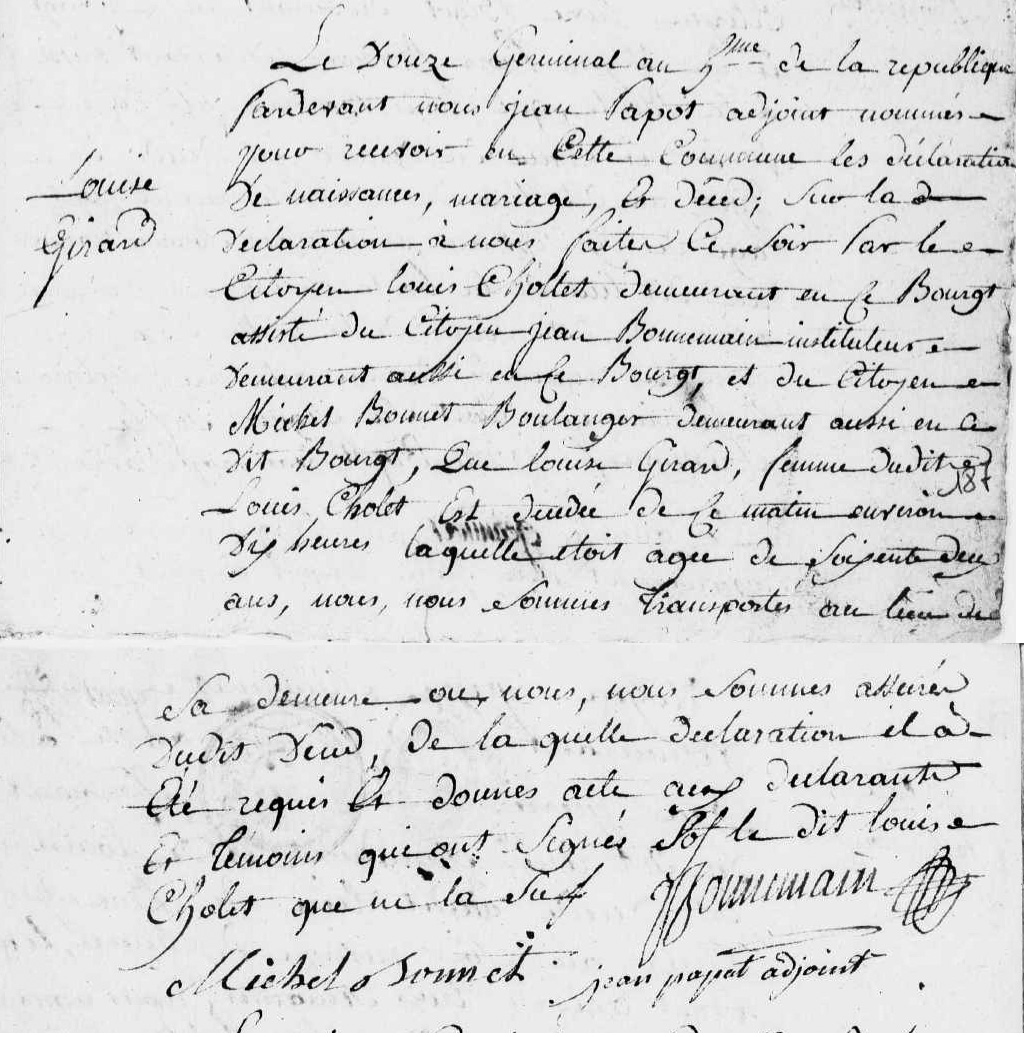 Le Douze Germinal an 5me de la republique
Pardevant nous jean Papot adjoint nommés
pour recevoir en Cette Commune les déclaration
Louise
De naissances, mariage, Et décéd; sur la
Girard
Declaration à nous faites Ce soir Par le
Citoyen louis Choltet demeurant en Ce Bourgt
assisté du Citoyen jean Bonnemain instituteur
Demeurant aussi en Ce Bourgt, et du Citoyen
Michel Bonnet Boulanger demeurant aussi en Ce
Dit Bourgt, Que louise Girard, femme dudit
187
Louis Cholet Est decédée de Ce matin environ
Dix heures laquelle étoit agée de soixente deux
ans, nous, nous sommes Transportes au lieu de
Sa demeure ou, nous, nous sommes assurés
Dudit Décéd, de la quelle declaration il à
Eté requis Et donnes acte aux declarants
Et temoins qui ont signés le dit louis
Cholet qui ne la suf Bonnemain
Michel Bonnet jean papot adjoint